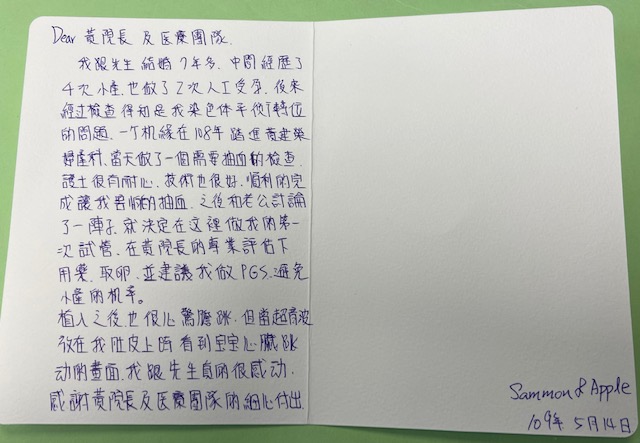 Dear 黃院長 及 医療團隊.
我跟先生 結婚 7年多. 中間 經歷了
4次 小產. 也做了 2次 人工受孕. 後來
經过檢查 得知是 我染色体 平衡轉位
的問題. 一个机緣在 108年 踏進 黃建榮
婦產科. 當天做了一個需要抽血的檢查.
護士很有耐心. 技術也很好. 順利的完
成讓我害怕的抽血. 之後和老公討論
了一陣子. 就決定在這裡做我的第一
次 試管. 在黃院長的專業評估下
用藥. 取卵. 並建議我做 PGS. 避免
小產的机率。
植入之後. 也很心驚膽跳. 但當超音波
放在我肚皮上 所看到宝宝心臟跳
动的畫面. 我跟先生真的很感动.
感謝黃院長及医療團隊的細心付出
Sammon & Apple
109年 5月14日